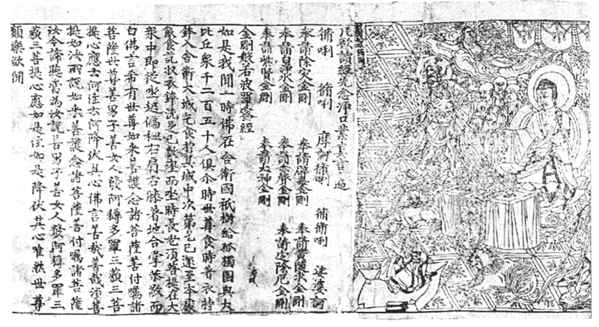 凡欲讀經先念淨口業真言一遍
脩唎　脩唎　摩訶脩唎　脩脩唎　娑婆訶
奉請除灾金剛　奉請辟毒金剛　奉請黃隨求金剛
奉請白淨水金剛　奉請赤聲金剛　奉請定除厄金剛
奉請紫賢金剛　奉請大神金剛
金剛般若波羅蜜經
如是我聞一時佛在舍衛國祇樹給孤獨園與大
比丘衆千二百五十人俱尒時世尊食時著衣持
鉢入舍衛大城乞食於其城中次第乞已還至本處
飯食訖収衣鉢洗足已敷座而坐時長老須菩提在大
衆中即從座起偏袒右肩右膝著地合掌恭敬而
白佛言希有世尊如來善護念諸菩薩善付囑諸
菩薩世尊善男子善女人發阿耨多羅三藐三菩
提心應云何住云何降伏其心佛言善哉善哉須菩
提如汝所說如來善護念諸菩薩善付囑諸菩薩
汝今諦聽當為汝說善男子善女人發阿耨多羅三
藐三菩提心應如是住如是降伏其心唯然世尊
願樂欲聞